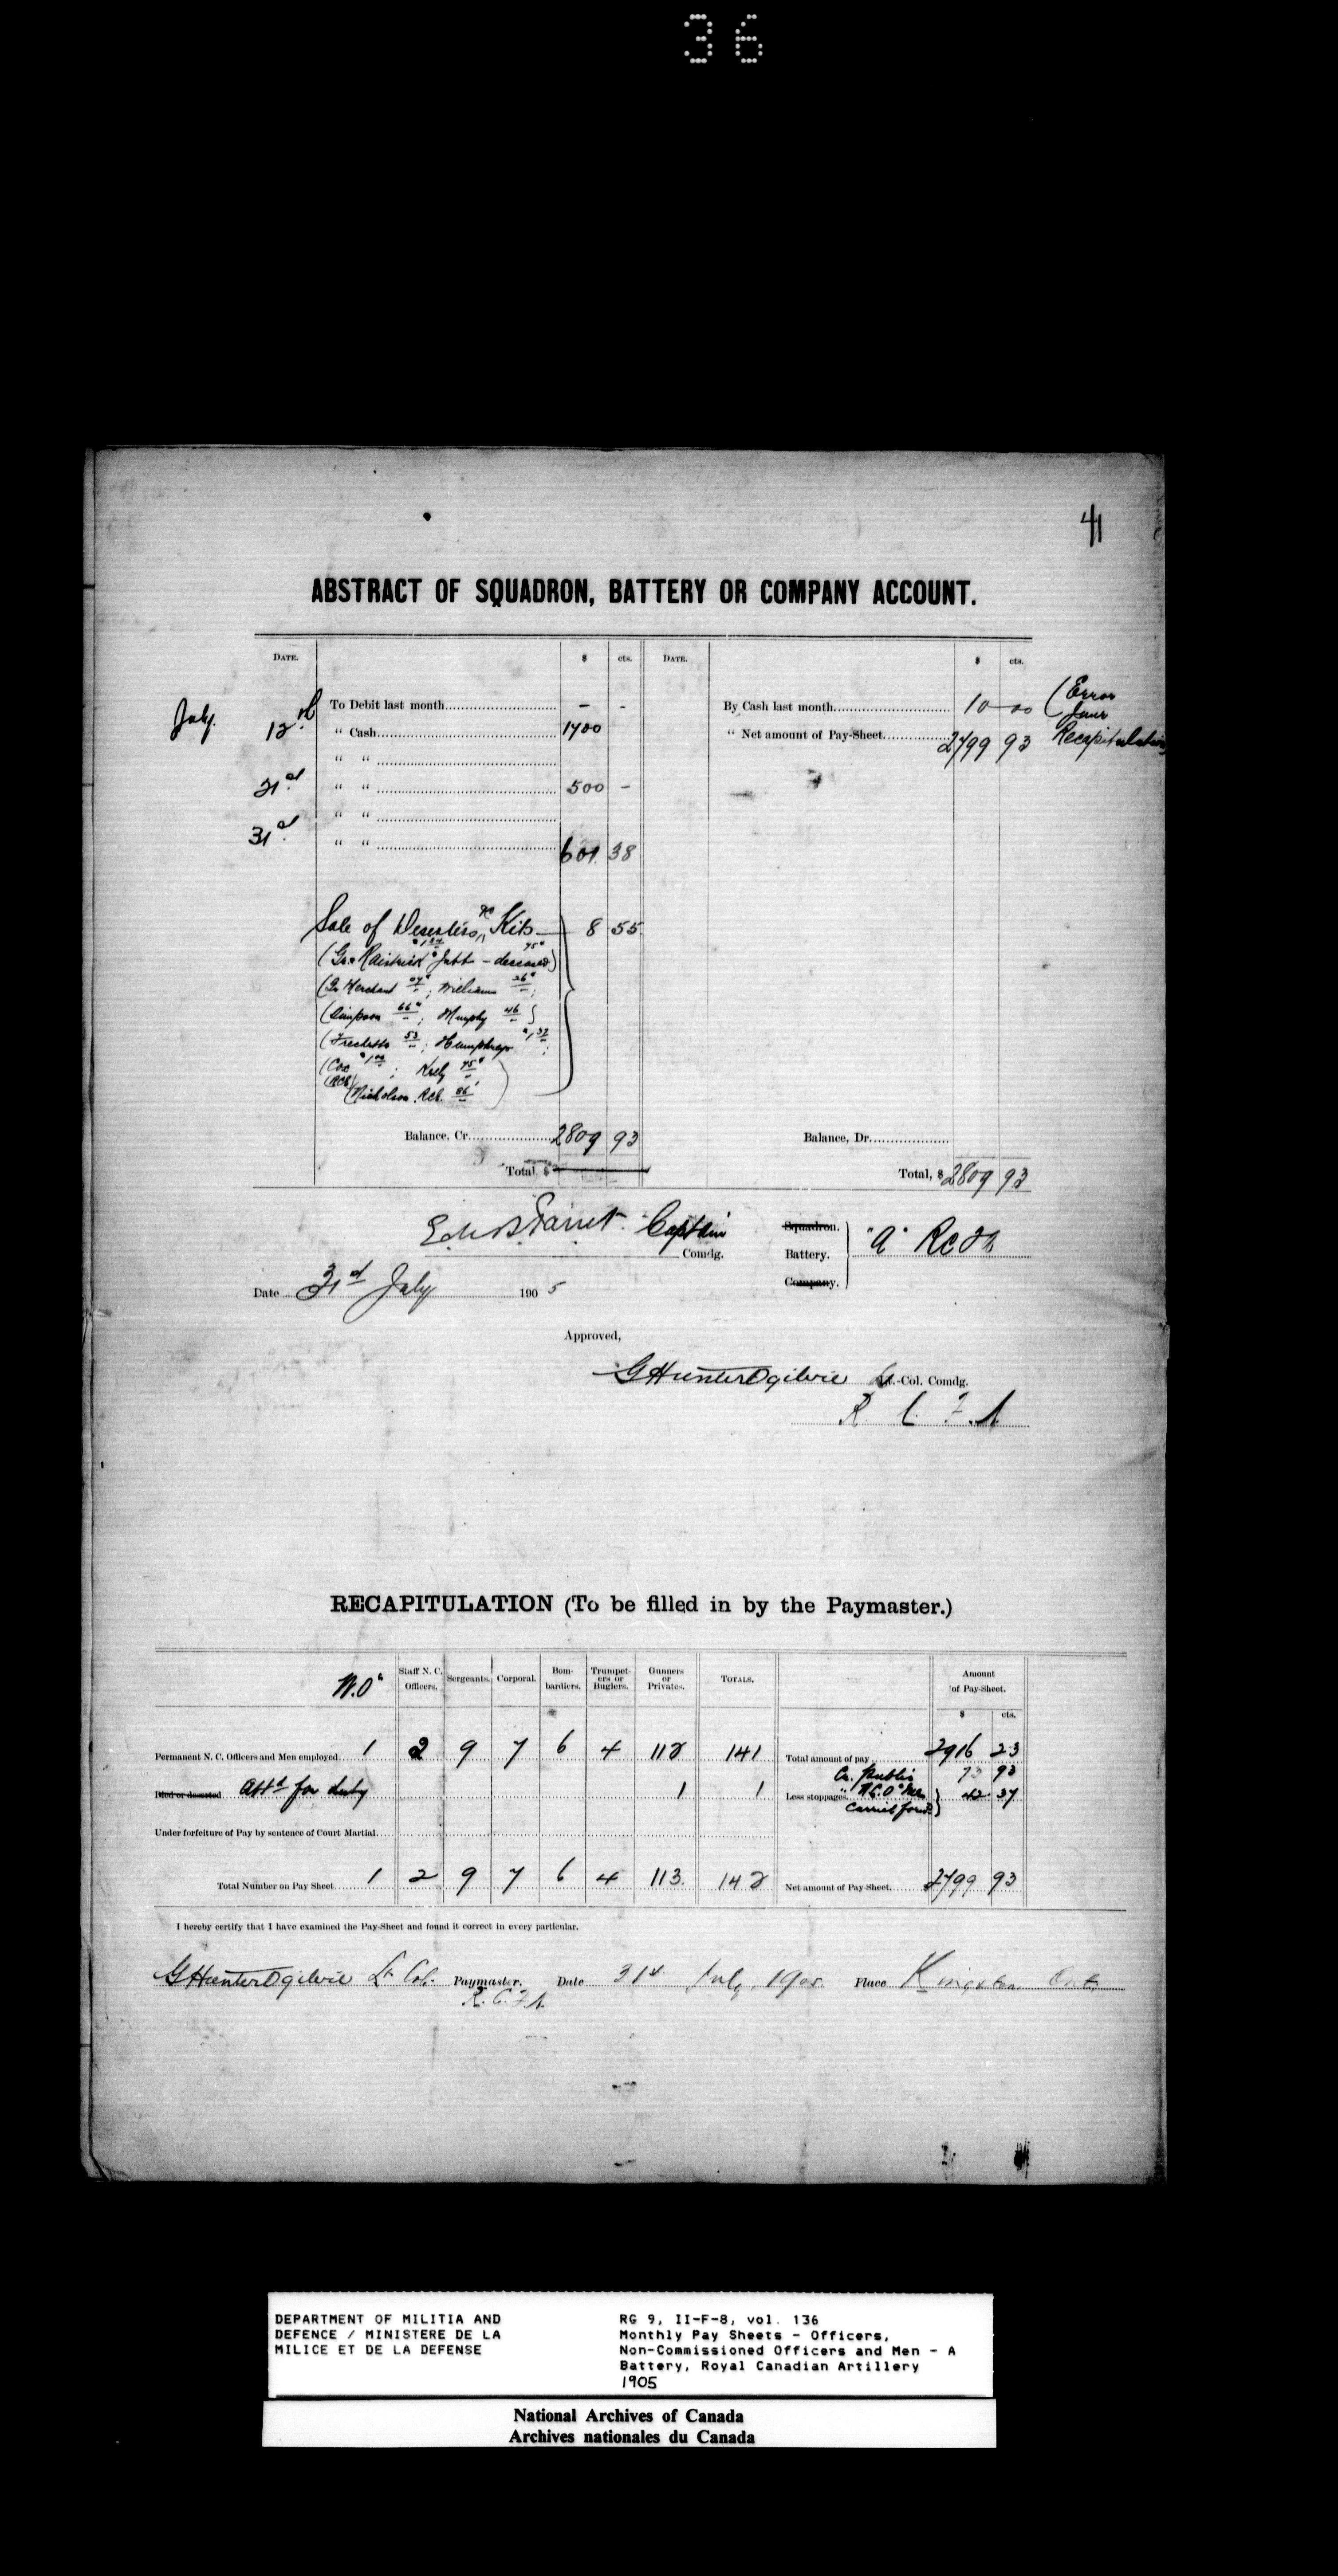 36
41
ABSTRACT OF SQUADRON, BATTERY OR COMPANY ACCOUNT.
DATE. $ cts. DATE. $ cts.
To Debit last month - - By Cash last month 10 00 (Error
June
July. 12th " Cash 1700 " Net amount of Pay-Sheet 2799 93 Recapitulation
" "
21st " " 500 -
" "
31st " " 601 38
Sale of Deserters &c Kits 8 55
Jutt - deceased)
(Gr Merchant ; William 36c ;
(Simpson 66c ; Murphy 46 )
(Frechette 53 ; Humphreys ;
(Cox ; 75c
(RCR)
(Nicholson RCR. 86
Balance, Cr. 2809 93 Balance, Dr.
Total, $ Total, $ 2809 93
Captain
Comdg.
Squadron.
Battery. "A" RCFA
Company.
Date 31st July 1905
Approved,
G Hunter Ogilvie Lt.-Col. Comdg.
R C F A
RECAPITULATION (To be filled in by the Paymaster.)
W.O. Staff N. C. Officers. Sergeants. Corporal. Bombardiers. Trumpeters or Buglers. Gunners or Privates. TOTALS. Amount of Pay-Sheet.
$ cts.
Permanent N. C. Officers and Men employed 1 2 9 7 6 4 112 141 Total amount of pay 2916 23
Cr. Public 73 93
Died or deserted Attd for duty 1 1 Less stoppages " N.C.O. & Men 42 37
carried forwd
Under forfeiture of Pay by sentence of Court Martial
Total Number on Pay Sheet 1 2 9 7 6 4 113 142 Net amount of Pay-Sheet 2799 93
I hereby certify that I have examined the Pay-Sheet and found it correct in every particular.
G Hunter Ogilvie Lt Col. Paymaster. Date 31st July, 1905. Place Kingston Ont.
R. C. F. A.
DEPARTMENT OF MILITIA AND
DEFENCE / MINISTERE DE LA
MILICE ET DE LA DEFENSE
RG 9, II-F-8, vol. 136
Monthly Pay Sheets - Officers,
Non-Commissioned Officers and Men - A
Battery, Royal Canadian Artillery
1905
National Archives of Canada
Archives nationales du Canada